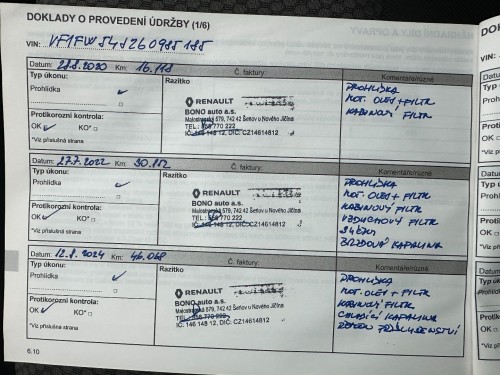 DOKLADY O PROVEDENÍ ÚDRŽBY (1/6)
VIN:
Datum: 28.8.2020 Km: 16.118
Č. faktury:
Komentáře/různé
Typ úkonu:
Razítko
Prohlídka
PROHLÍDKA
MOT. OLEJ + FILTR
KABINOVÝ FILTR
RENAULT
BONO auto a.s.
Malostranská 579, 742 42 Šenov u Nového Jičína
TEL.: 556 770 222
IČ: 146 148 12, DIČ: CZ14614812
Protikorozní kontrola:
OK KO*
*Viz příslušná strana
Datum: 27.7.2022 Km: 30.112
Č. faktury:
Komentáře/různé
Typ úkonu:
Razítko
Prohlídka
PROHLÍDKA
MOT. OLEJ + FILTR
KABINOVÝ FILTR
VZDUCHOVÝ FILTR
SVÍČKY
BRZDOVÁ KAPALINA
RENAULT
BONO auto a.s.
Malostranská 579, 742 42 Šenov u Nového Jičína
TEL.: 556 770 222
IČ: 146 148 12, DIČ: CZ14614812
Protikorozní kontrola:
OK KO*
*Viz příslušná strana
Datum: 12.8.2024 Km: 46.068
Č. faktury:
Komentáře/různé
Typ úkonu:
Razítko
Prohlídka
PROHLÍDKA
MOT. OLEJ + FILTR
KABINOVÝ FILTR
CHLADÍCÍ KAPALINA
RENAULT
BONO auto a.s.
Malostranská 579, 742 42 Šenov u Nového Jičína
TEL.: 556 770 222
IČ: 146 148 12, DIČ: CZ14614812
Protikorozní kontrola:
OK KO*
*Viz příslušná strana
6.10